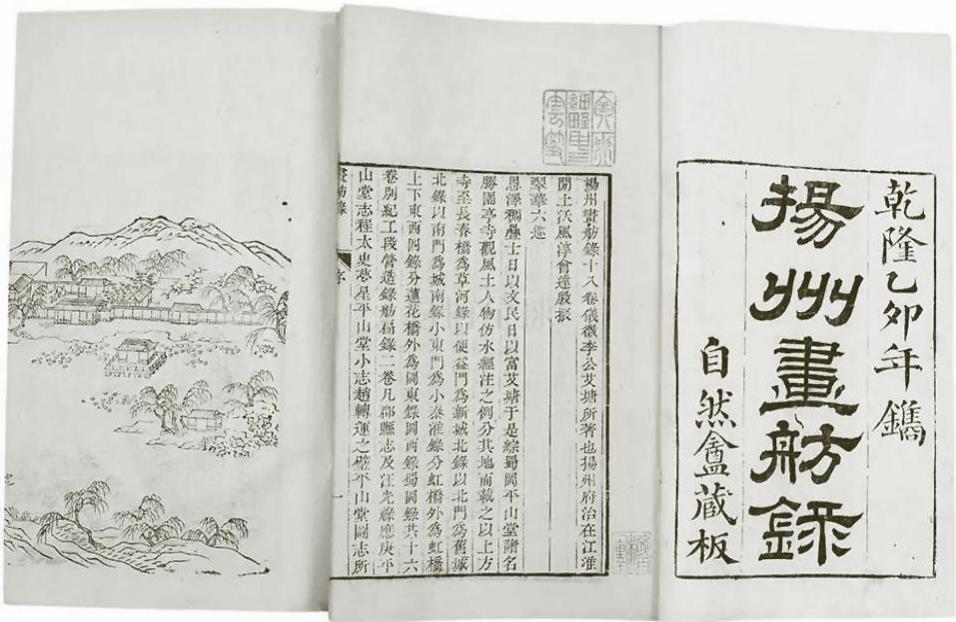 乾隆乙卯年鐫
揚州畫舫錄
自然盦藏板
揚州畫舫錄十八卷儀徵李公艾塘所著也揚州府治在江淮
間土沃風淳會達殷振
翠華六巡
恩澤稠疊士日以文民日以富艾塘于是綜蜀岡平山堂諸名
勝園亭寺觀風土人物仿水經注之例分其地而載之以上方
寺至長春橋為草河錄以便益門為新城北錄以北門為舊城
北錄以南門為城南錄小東門為小秦淮錄分虹橋外為虹橋
上下東西四錄分蓮花橋外為岡東錄岡西錄蜀岡錄共十六
卷別紀工段營造錄舫扁錄二卷凡郡縣志及汪光祿應庚平
山堂志程太史夢星平山堂小志趙轉運之壁平山堂圖志所
畫舫錄 序 一